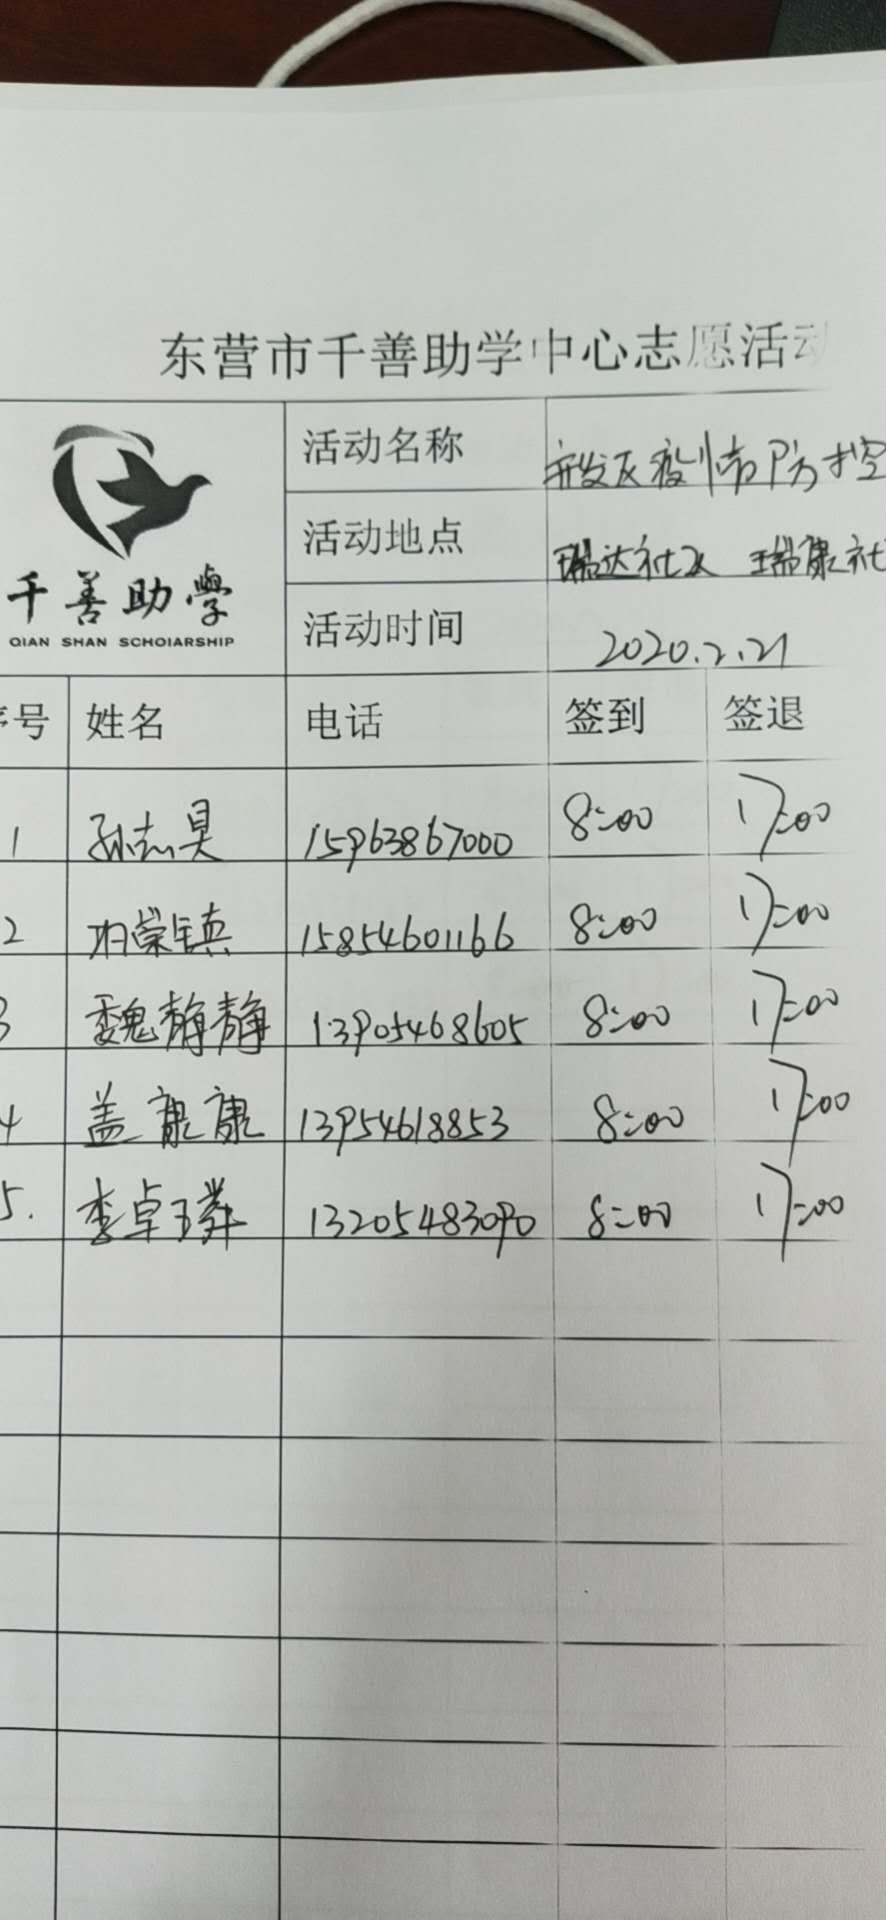 东营市千善助学中心志愿活动
千善助學
QIAN SHAN SCHOIARSHIP
活动名称 开发区疫情防控
活动地点 瑞达社区 瑞康社
活动时间 2020.2.21
序号 姓名 电话 签到 签退
1 孙志昊 15963867000 8:00 17:00
2 荣镇 15854601166 8:00 17:00
3 魏静静 13905468605 8:00 17:00
4 盖康康 13954618853 8:00 17:00
5. 李卓璘 13205483090 8:00 17:00